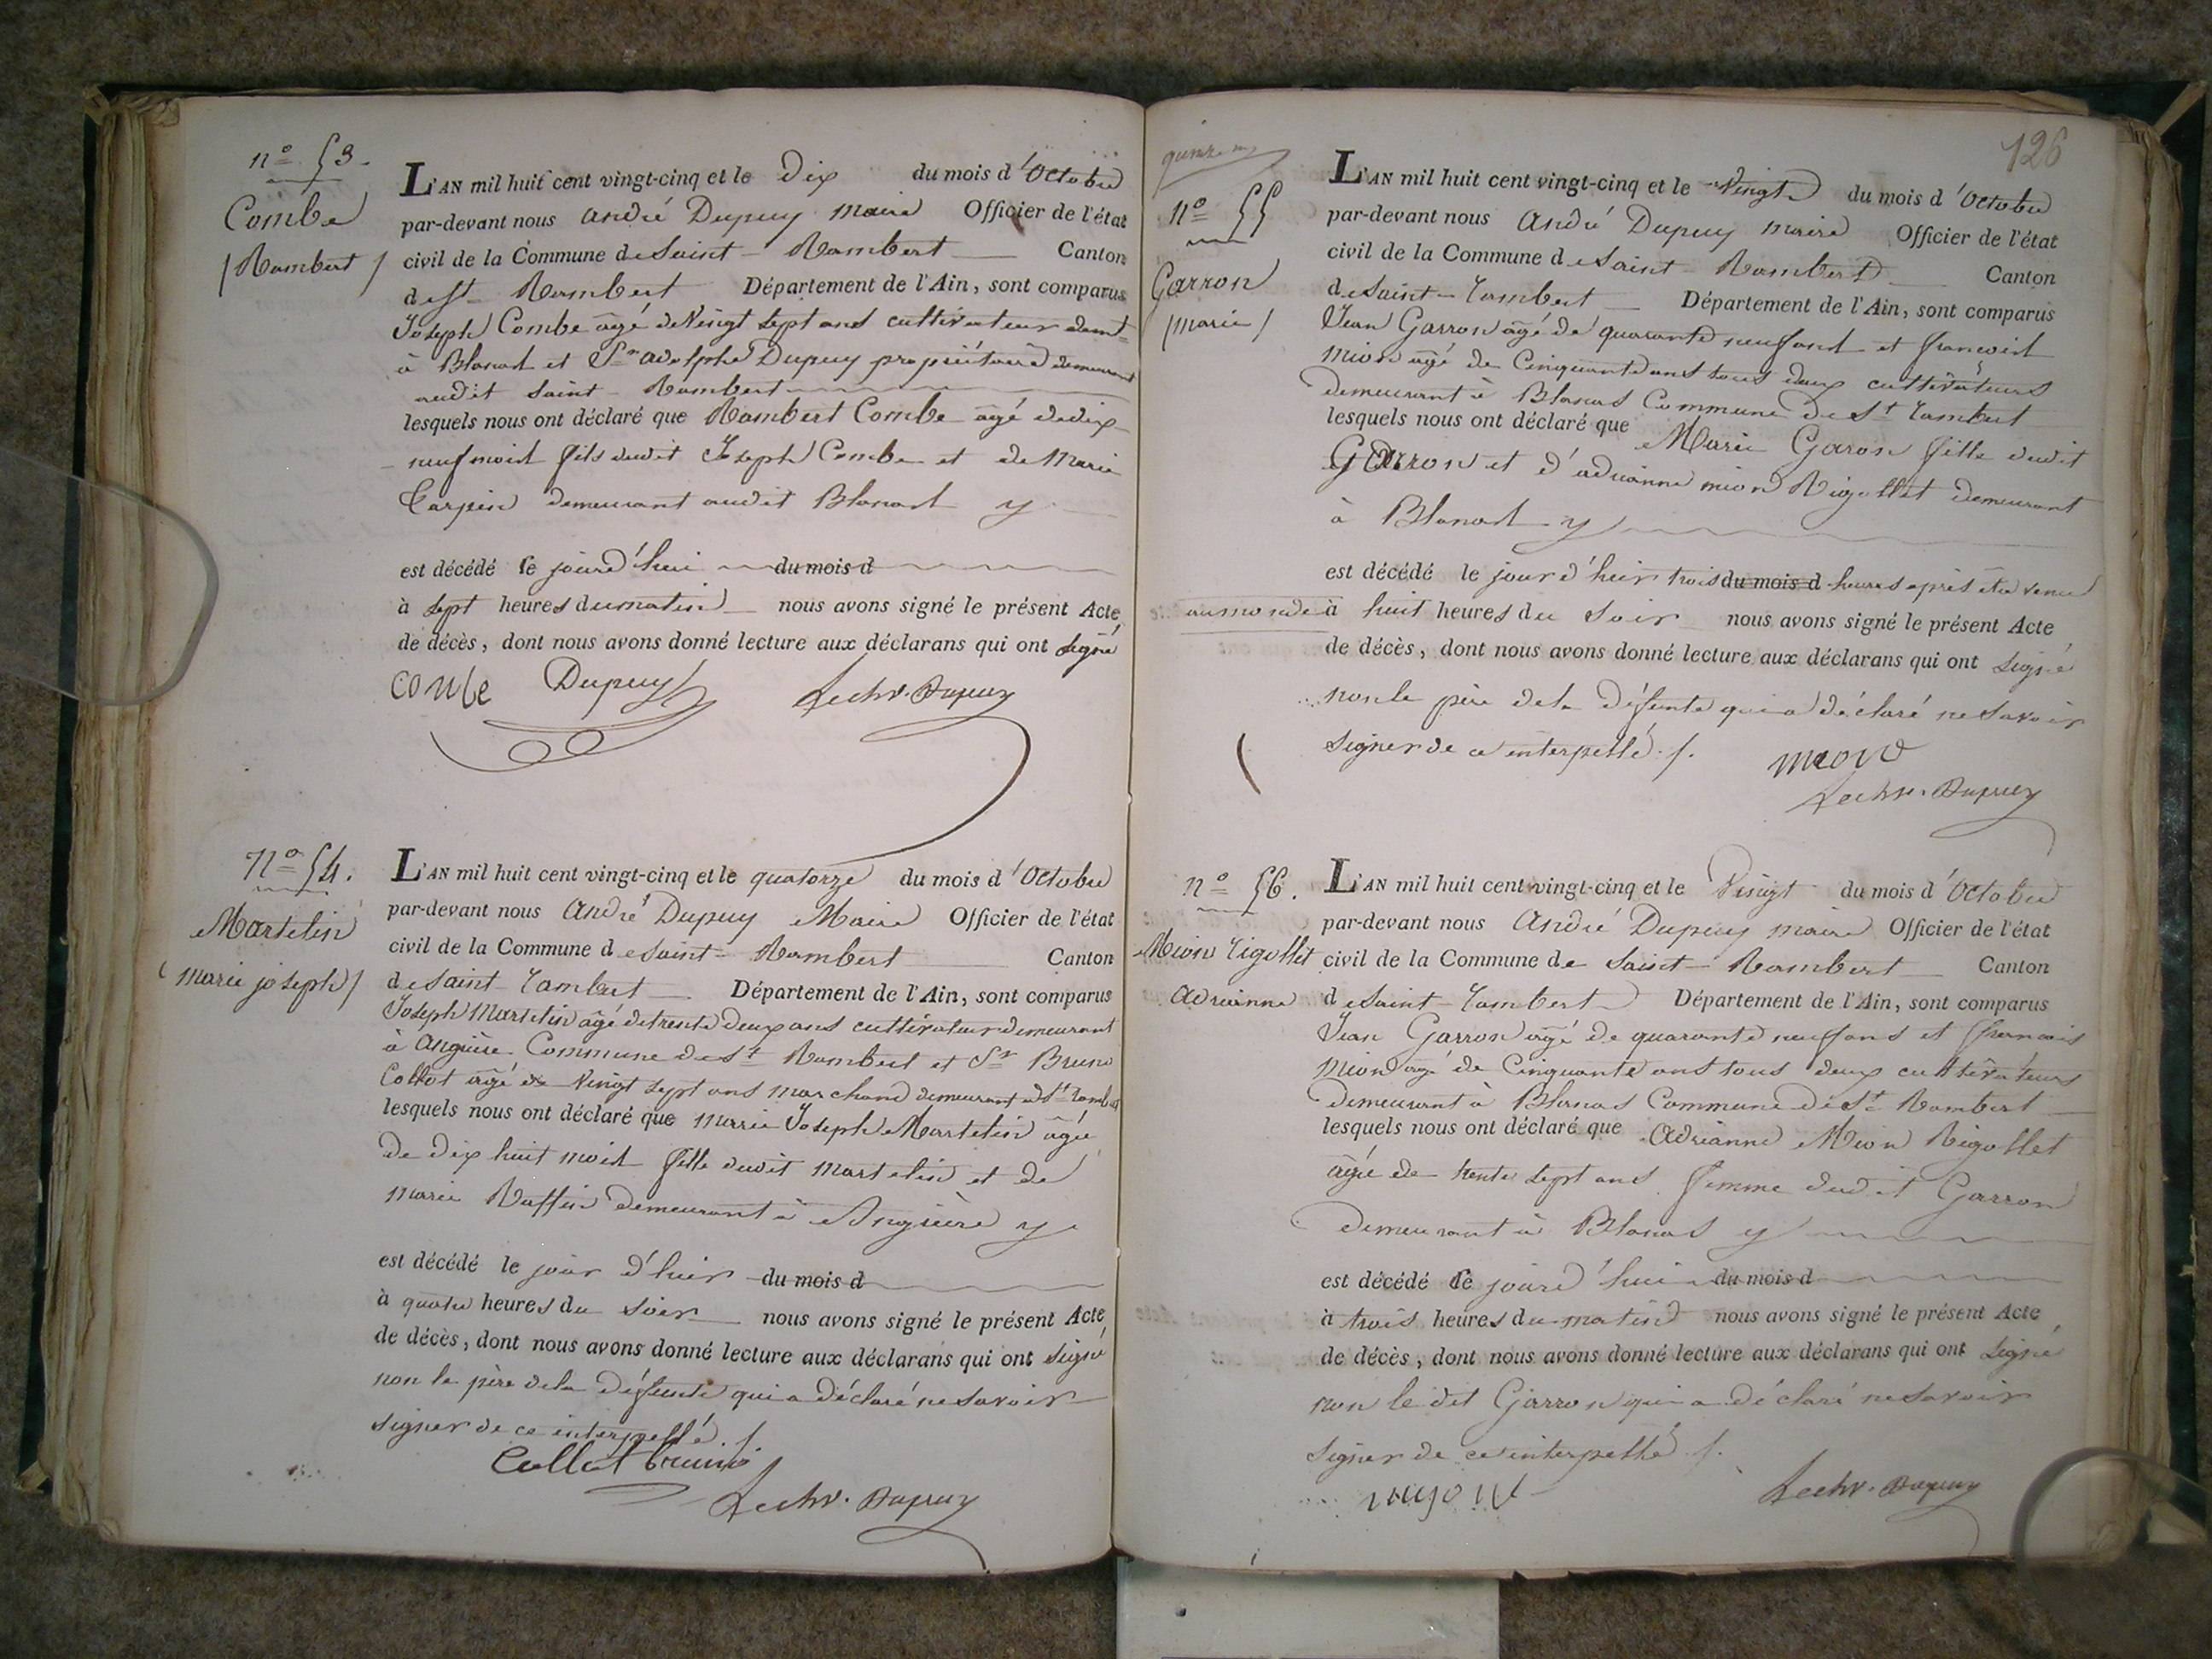 n° 53.
Combe
/ Rambert /
L'AN mil huit cent vingt-cinq et le dix du mois d'Octobre
par-devant nous André Dupuy maire Officier de l'état
civil de la Commune de Saint-Rambert Canton
de St Rambert Département de l'Ain, sont comparus
Joseph Combe âgé de Vingt sept ans cultivateur demt
à Blanas et Sr adolphe Dupuy propriétaire demeurant
audit Saint-Rambert
lesquels nous ont déclaré que Rambert Combe âgé de dix-
neuf mois fils dudit Joseph Combe et de Marie
Carpin demeurant audit Blanas y
est décédé le jourd'hui du mois d
à sept heures du matin nous avons signé le présent Acte
de décès, dont nous avons donné lecture aux déclarans qui ont signé
combe Dupuy Lechr. Dupuy
n° 54.
Martelin
(marie joseph)
L'AN mil huit cent vingt-cinq et le quatorze du mois d'Octobre
par-devant nous André Dupuy Maire Officier de l'état
civil de la Commune de Saint-Rambert Canton
de Saint Rambert Département de l'Ain, sont comparus
Joseph Martelin âgé de trente deux ans cultivateur demeurant
à Angrière Commune de St Rambert et Sr Bruno
Collot âgé de Vingt sept ans marchand demeurant à St Rambert
lesquels nous ont déclaré que marie Joseph Martelin âgée
de dix huit mois fille dudit martelin et de
marie Ruffin demeurant à Angrière y
est décédé le jour d'hui du mois d
à quatre heures du soir nous avons signé le présent Acte
de décès, dont nous avons donné lecture aux déclarans qui ont signé
non le père de la défunte qui a déclaré ne savoir
signer de ce interpellé ./.
Collot bruno
Lechr. Dupuy
126
n° 55
Garron
/marie/
L'AN mil huit cent vingt-cinq et le Vingt du mois d'Octobre
par-devant nous André Dupuy maire Officier de l'état
civil de la Commune de Saint-Rambert Canton
de Saint-Rambert Département de l'Ain, sont comparus
Jean Garron âgé de quarante neuf ans et françois
mion âgé de Cinquante ans tous deux cultivateurs
demeurant à Blanas Commune de St Rambert
lesquels nous ont déclaré que Marie Garon fille dudit
Garron et d'adrianne mion Rigollet demeurant
à Blanas y
est décédé le jour d'hui trois du mois d heures après être venue
au monde à huit heures du soir nous avons signé le présent Acte
de décès, dont nous avons donné lecture aux déclarans qui ont signé
non le père de la défunte qui a déclaré ne savoir
signer de ce interpellé ./.
mion
Lechr. Dupuy
n° 56.
Mion Rigollet
Adrianne
L'AN mil huit cent vingt-cinq et le Vingt du mois d'Octobre
par-devant nous André Dupuy maire Officier de l'état
civil de la Commune de Saint-Rambert Canton
de Saint-Rambert Département de l'Ain, sont comparus
Jean Garron âgé de quarante neuf ans et francois
mion âgé de Cinquante ans tous deux cultivateurs
demeurant à Blanas Commune de St Rambert
lesquels nous ont déclaré que Adrianne Mion Rigollet
âgée de trente sept ans femme dudit Garron
demeurant à Blanas y
est décédé le jourd'hui du mois d
à trois heures du matin nous avons signé le présent Acte
de décès, dont nous avons donné lecture aux déclarans qui ont signé
non le dit Garron qui a déclaré ne savoir
signer de ce interpellé ./.
mion Lechr. Dupuy